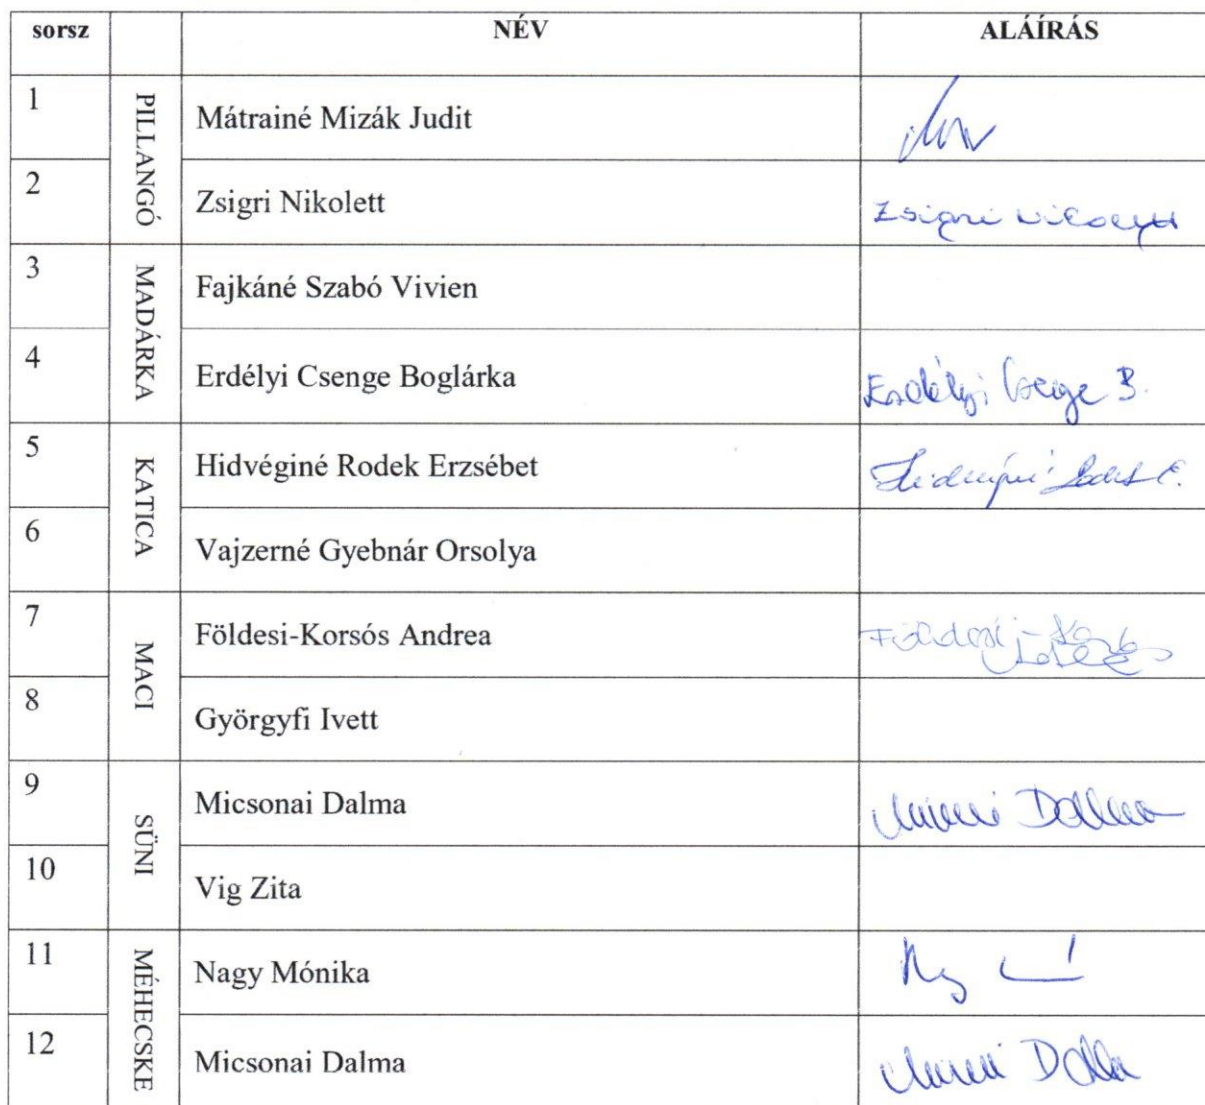 sorsz NÉV ALÁÍRÁS
1 PILLANGÓ Mátrainé Mizák Judit
2 Zsigri Nikolett Zsigri Nikolett
3 MADÁRKA Fajkáné Szabó Vivien
4 Erdélyi Csenge Boglárka Erdélyi Csenge B.
5 KATICA Hidvéginé Rodek Erzsébet Hidvéginé Rodek E.
6 Vajzerné Gyebnár Orsolya
7 MACI Földesi-Korsós Andrea Földesi-Korsós
8 Györgyfi Ivett
9 SÜNI Micsonai Dalma Dalma
10 Vig Zita
11 MÉHECSKE Nagy Mónika
12 Micsonai Dalma